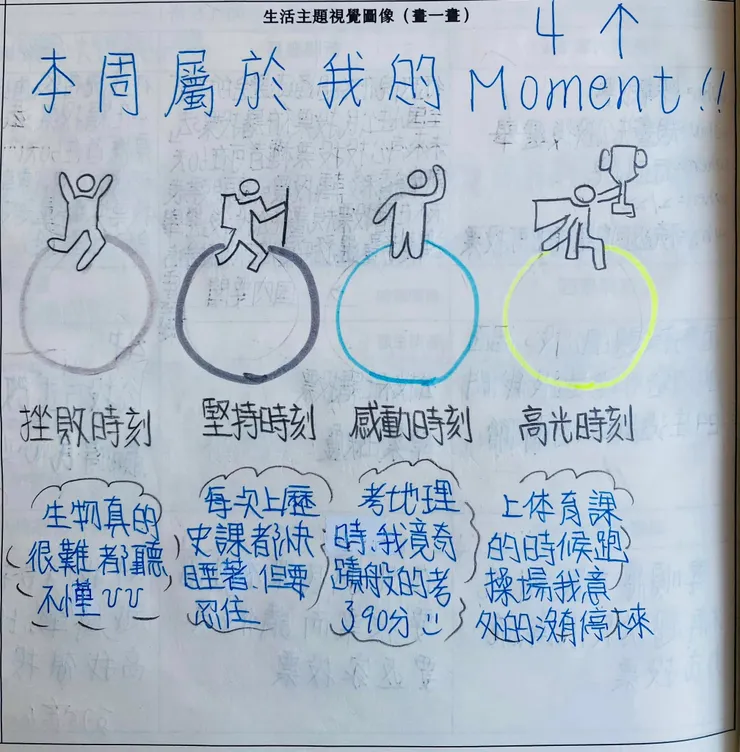 生活主題視覺圖像（畫一畫）
4↑
本周屬於我的 Moment!!
挫敗時刻
堅持時刻
感動時刻
高光時刻
生物真的
很難都聽
不懂
每次上歷
史課都快
睡著、但要
忍住
考地理
時、我竟奇
蹟般的考
390分
上体育課
的時候跑
操場我意
外的沒有停下來